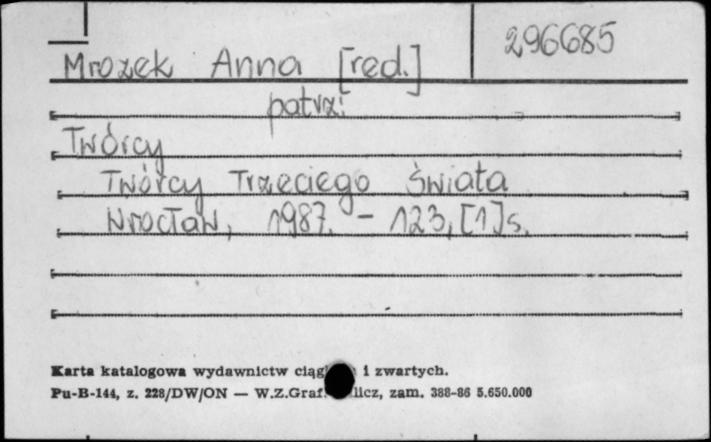 296685
Mrozek Anna [red.]
patrz:
Twórcy
Twórcy Trzeciego Świata
Wrocław, 1987. - 123, [1] s.
Karta katalogowa wydawnictw i zwartych.
Pu-B-144, z. 228/DW/ON — W.Z.Graf. zam. 388-86 5.650.000